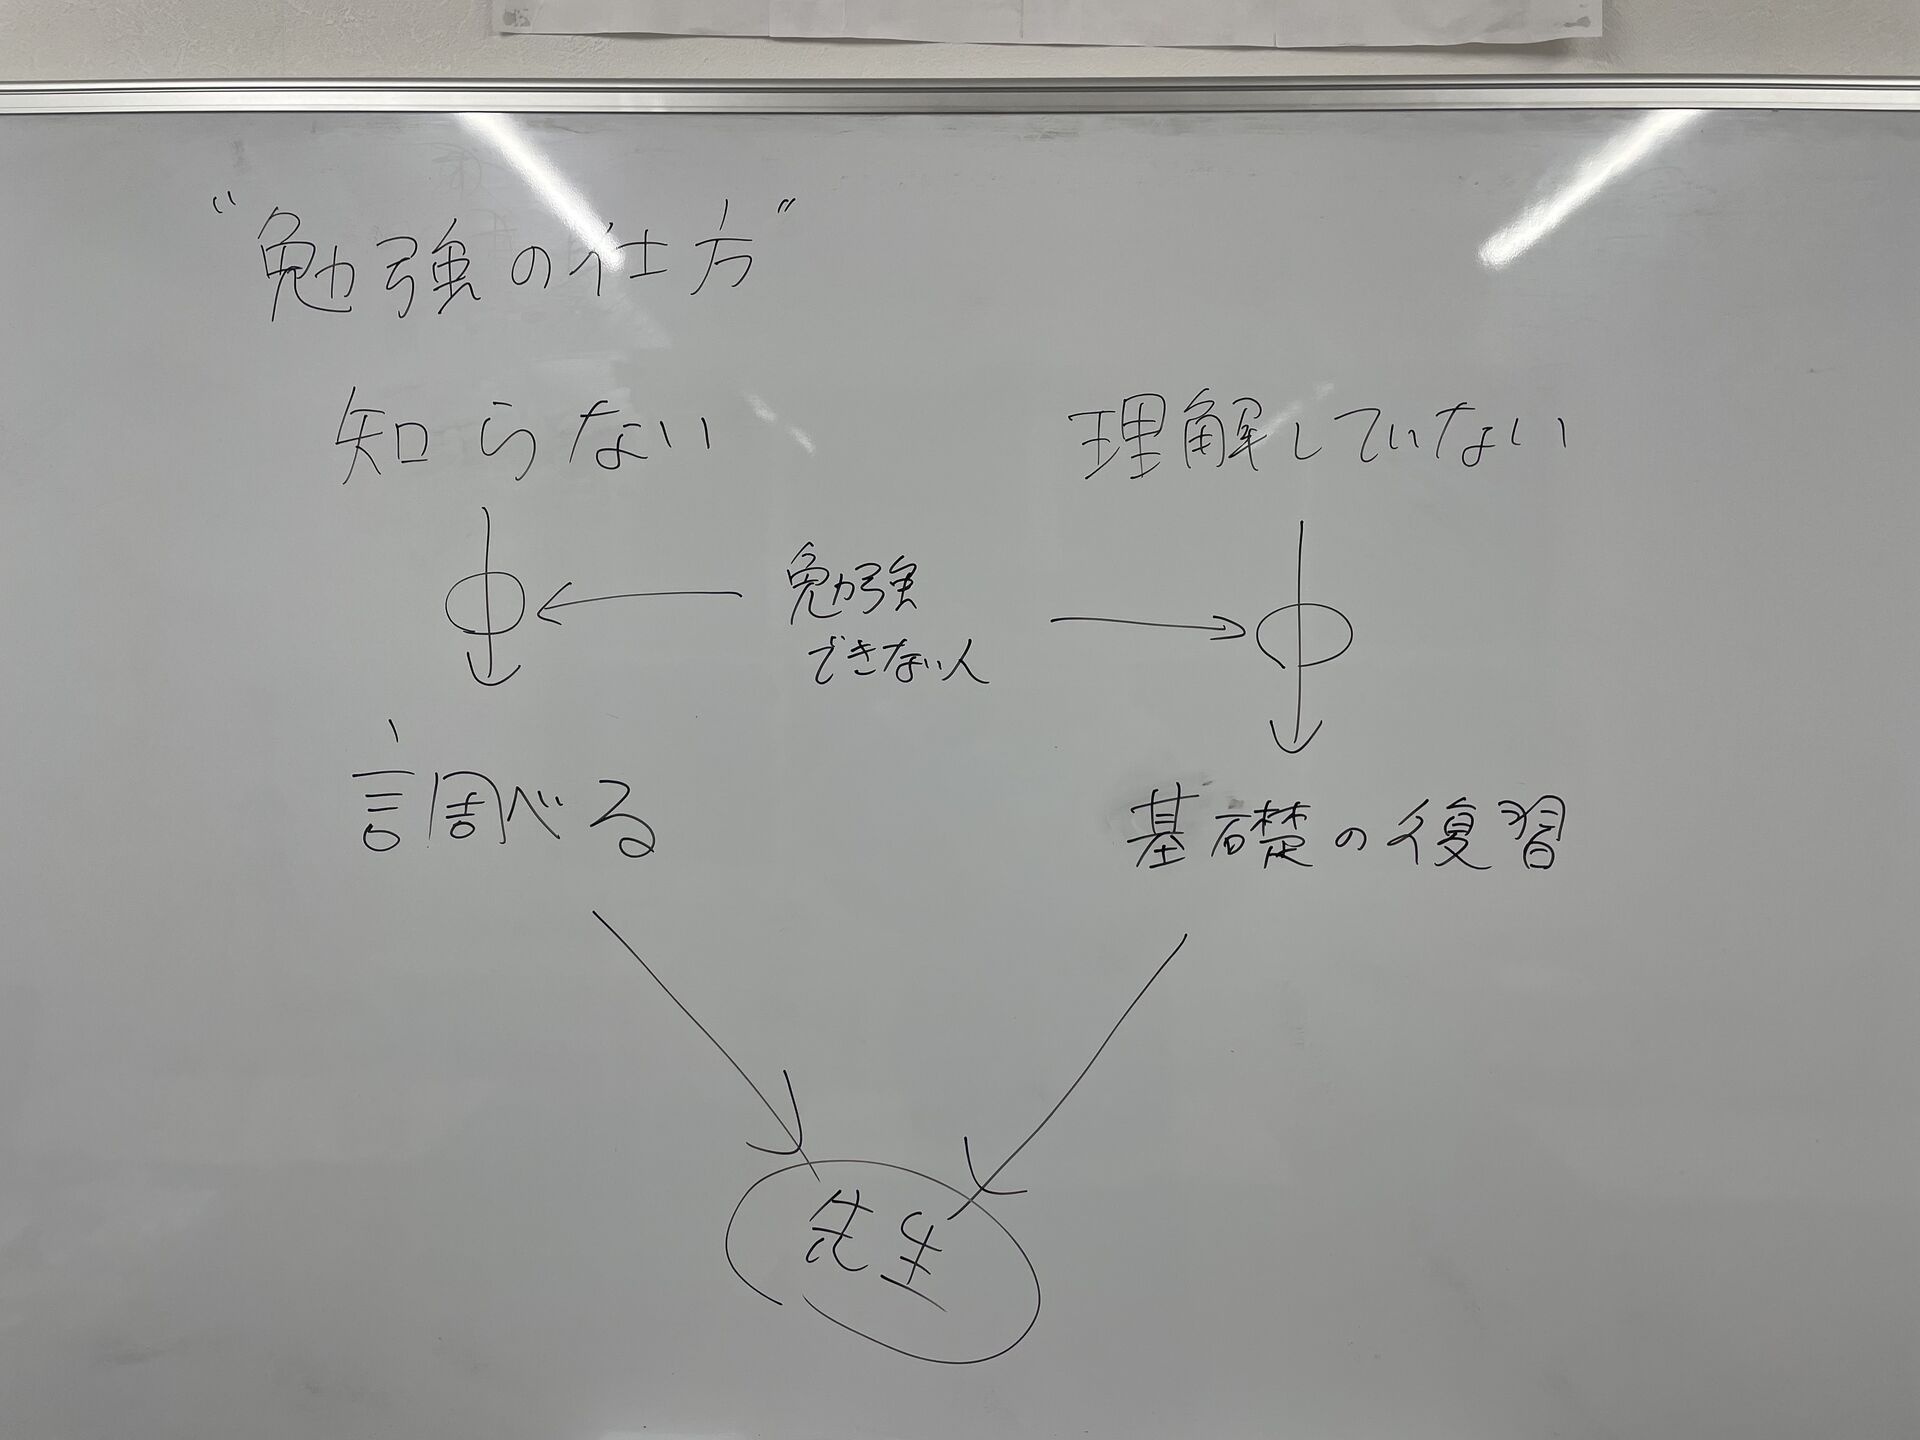 "勉強の仕方"
知らない
理解していない
勉強
できない人
調べる
基礎の復習
先生